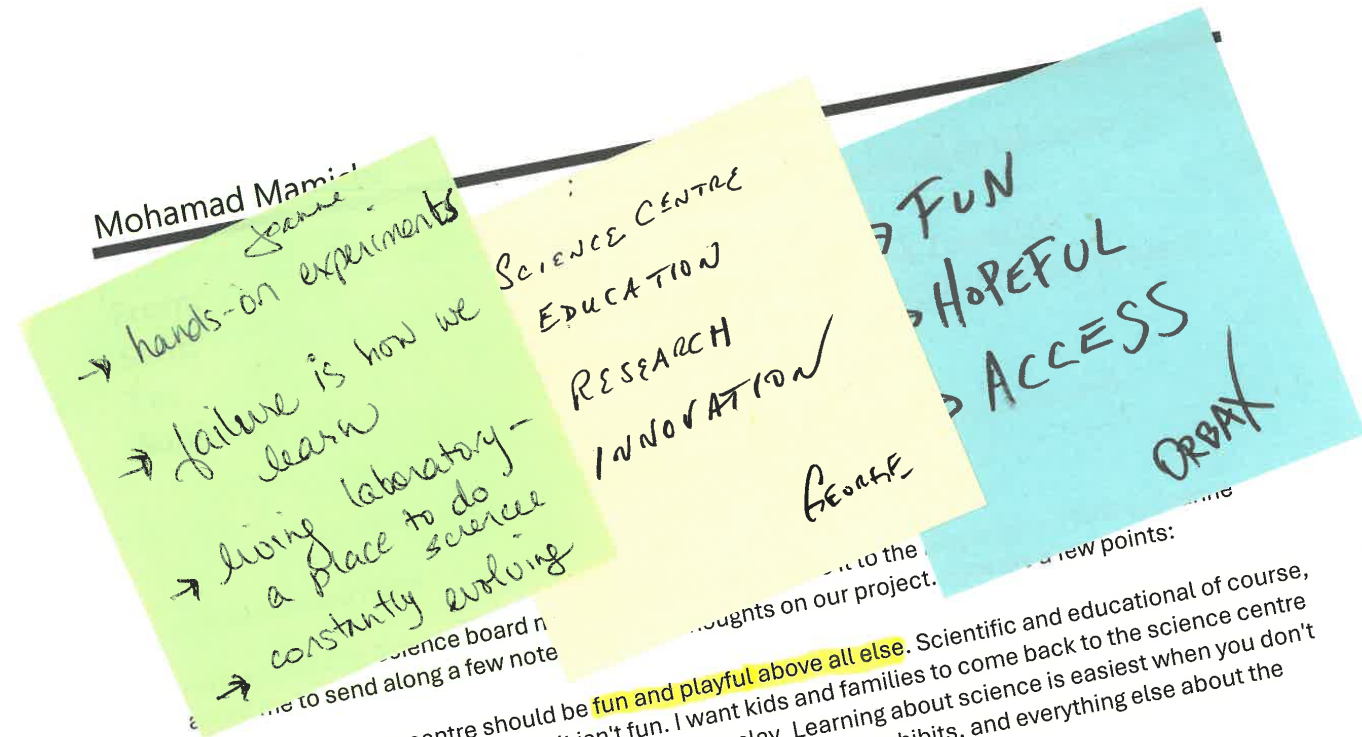 Mohamad
Joanne
→ hands-on experiments
→ failure is how we
learn
→ living laboratory-
a place to do
science
→ constantly evolving
SCIENCE CENTRE
EDUCATION
RESEARCH
INNOVATION
GEORGE
→ FUN
→ HOPEFUL
→ ACCESS
ORBAX
it to the few points:
board thoughts on our project.
to send along a few
should be fun and playful above all else. Scientific and educational of course,
isn't fun. I want kids and families to come back to the science centre
Learning about science is easiest when you don't
and everything else about the